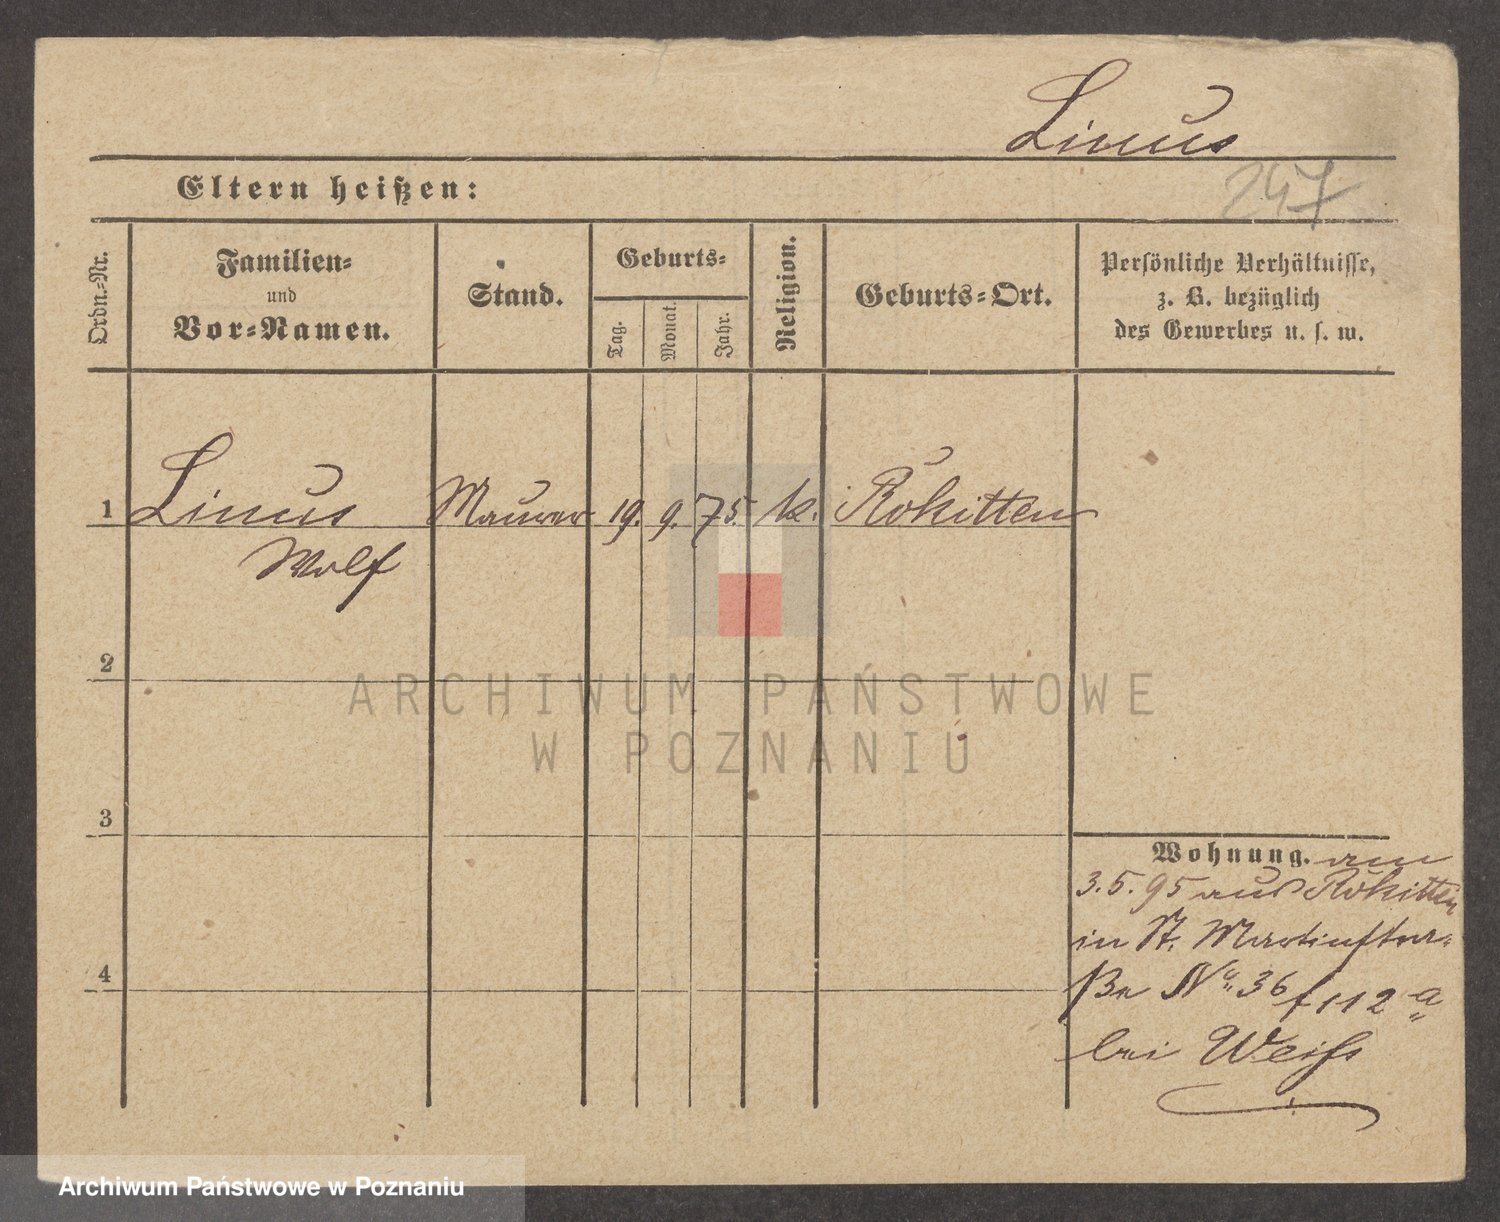 Linus
Eltern heißen:
247
Ordn.-Nr.
Familien-
und
Vor-Namen.
Stand.
Geburts-
Tag.
Monat.
Jahr.
Religion.
Geburts-Ort.
Persönliche Verhältnisse,
z. B. bezüglich
des Gewerbes u. s. w.
1 Linus Maurer 19. 9. 75. k. Rokitten
Wolf
2
3
4
Wohnung. am
3. 5. 95 aus Rokitten
in St. Martinstra-
ße No. 36/112 a
bei Weiss
ARCHIWUM PAŃSTWOWE
W POZNANIU
Archiwum Państwowe w Poznaniu